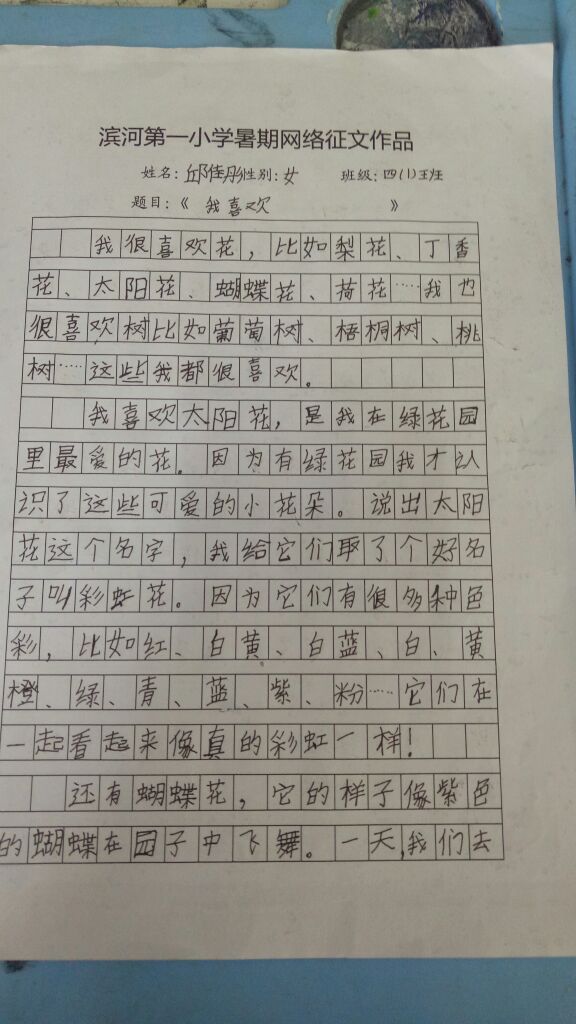 滨河第一小学暑期网络征文作品
姓名：邱佳彤性别：女 班级：四(1)班
题目：《 我喜欢 》
我很喜欢花，比如梨花、丁香
花、太阳花、蝴蝶花、荷花……我也
很喜欢树比如葡萄树、梧桐树、桃
树……这些我都很喜欢。
我喜欢太阳花，是我在绿花园
里最爱的花。因为有绿花园我才认
识了这些可爱的小花朵。说出太阳
花这个名字，我给它们取了个好名
子叫彩虹花。因为它们有很多种色
彩，比如红、白黄、白蓝、白、黄
橙、绿、青、蓝、紫、粉……它们在
一起看起来像真的彩虹一样！
还有蝴蝶花，它的样子像紫色
的蝴蝶在园子中飞舞。一天，我们去